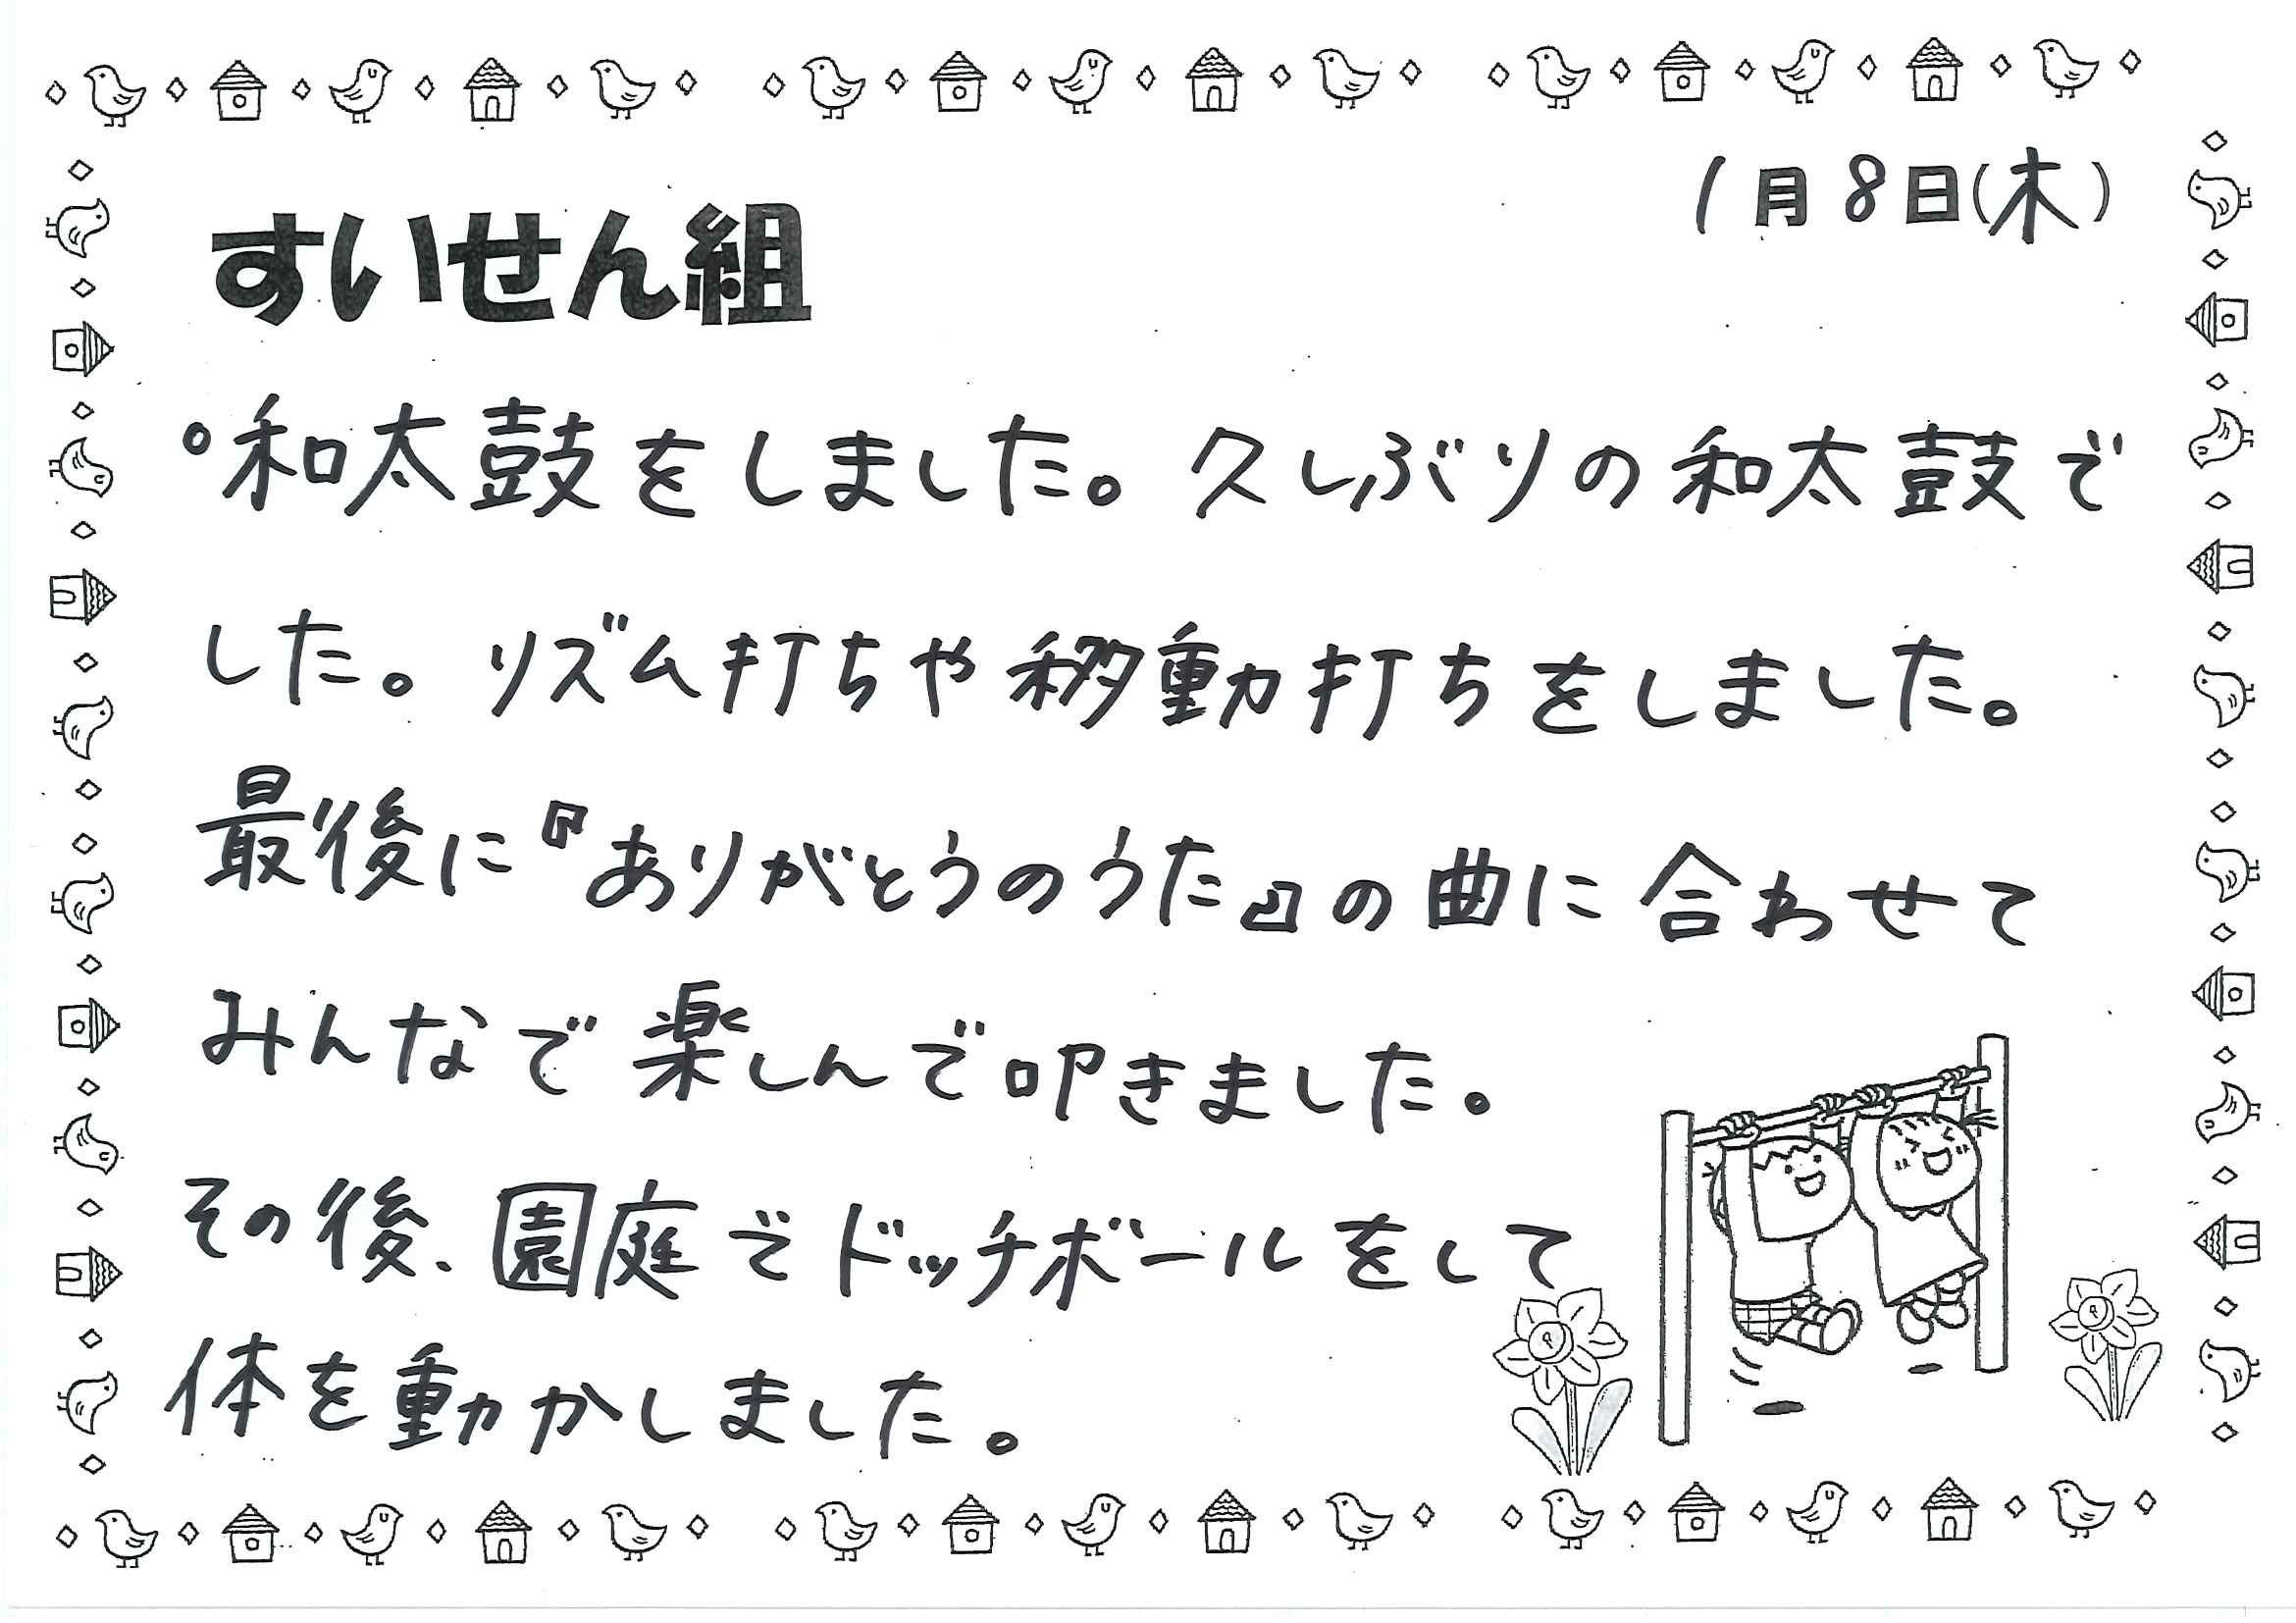 1月8日(木)
すいせん組
°和太鼓をしました。久しぶりの和太鼓で
した。リズム打ちや移動打ちをしました。
最後に『ありがとうのうた』の曲に合わせて
みんなで楽しんで叩きました。
その後、園庭でドッチボールをして
体を動かしました。